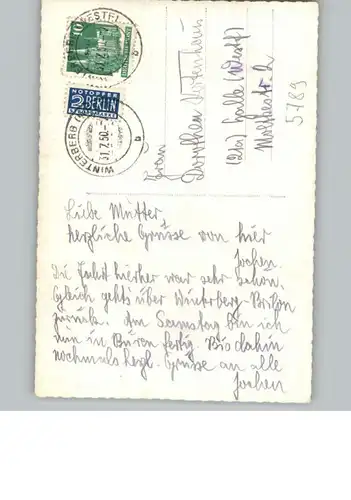 10
WINTERBERG (WESTF.)
31.7.50
b
NOTOPFER
2 BERLIN
STEUERMARKE
5789
Frau
Dorothea
(21a) Halle (Westf)
Liebe Mutter,
herzliche Grüsse von hier
Jochen.
Die Fahrt hierher war sehr schön.
Gleich gehts über Winterberg-Brilon
zurück. Am Samstag bin ich
nun in Büren fertig. Bis dahin
nochmals herzl. Grüsse an alle
Jochen